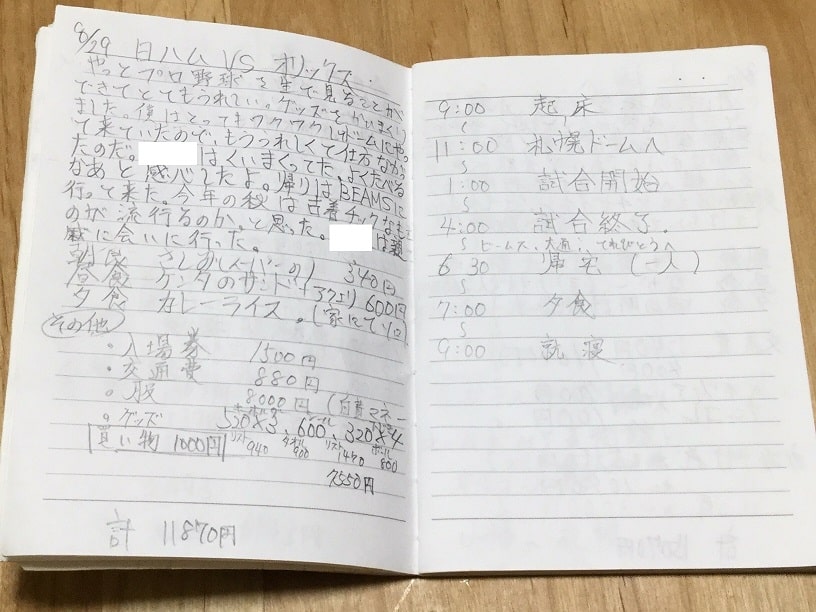 8/29 日ハム VS オリックス
やっとプロ野球を生で見ることが
できてとてもうれしい。グッズを かいまくり
ました。僕はとってもワクワクしドームにやっ
て来ていたので、もううれしくて仕方なかっ
たのだ。 はくいまくってた。よくたべる
なあと感心したよ。帰りはBEAMSに
行って来た。今年の秋は古着チックな
のが流行るのか、と思った。 は親
戚に会いに行った。
朝食 340円
昼食 ケンタのサンド 600円
夕食 カレーライス。(家にてソロ)
その他
・入場券 1500円
・交通費 880円
・服 8000円 (自費マネー
・グッズ 320×3、600、320×4
買い物 1000円 リスト 940 タオル 900 リスト 1470 ボール 800
7550円
計 11870円
9:00 起床
11:00 札幌ドームへ
1:00 試合開始
4:00 試合終了。
ビームス、大通
6:30 帰宅 (一人)
7:00 夕食
9:00 就寝